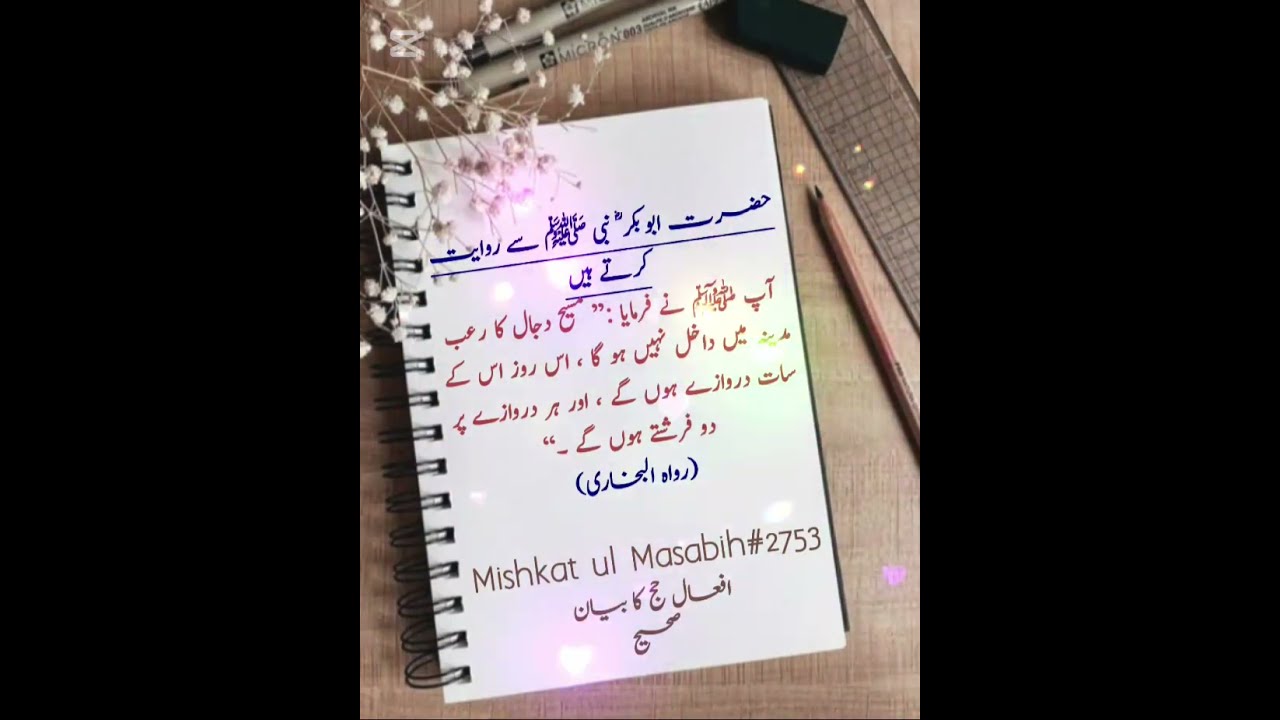 MICRON 003
حضرت ابو بکرؓ نبی ﷺ سے روایت
کرتے ہیں
آپ ﷺ نے فرمایا :” مسیح دجال کا رعب
مدینہ میں داخل نہیں ہو گا ، اس روز اس کے
سات دروازے ہوں گے ، اور ہر دروازے پر
دو فرشتے ہوں گے ۔“
(رواہ البخاری)
Mishkat ul Masabih#2753
افعال حج کا بیان
صحیح